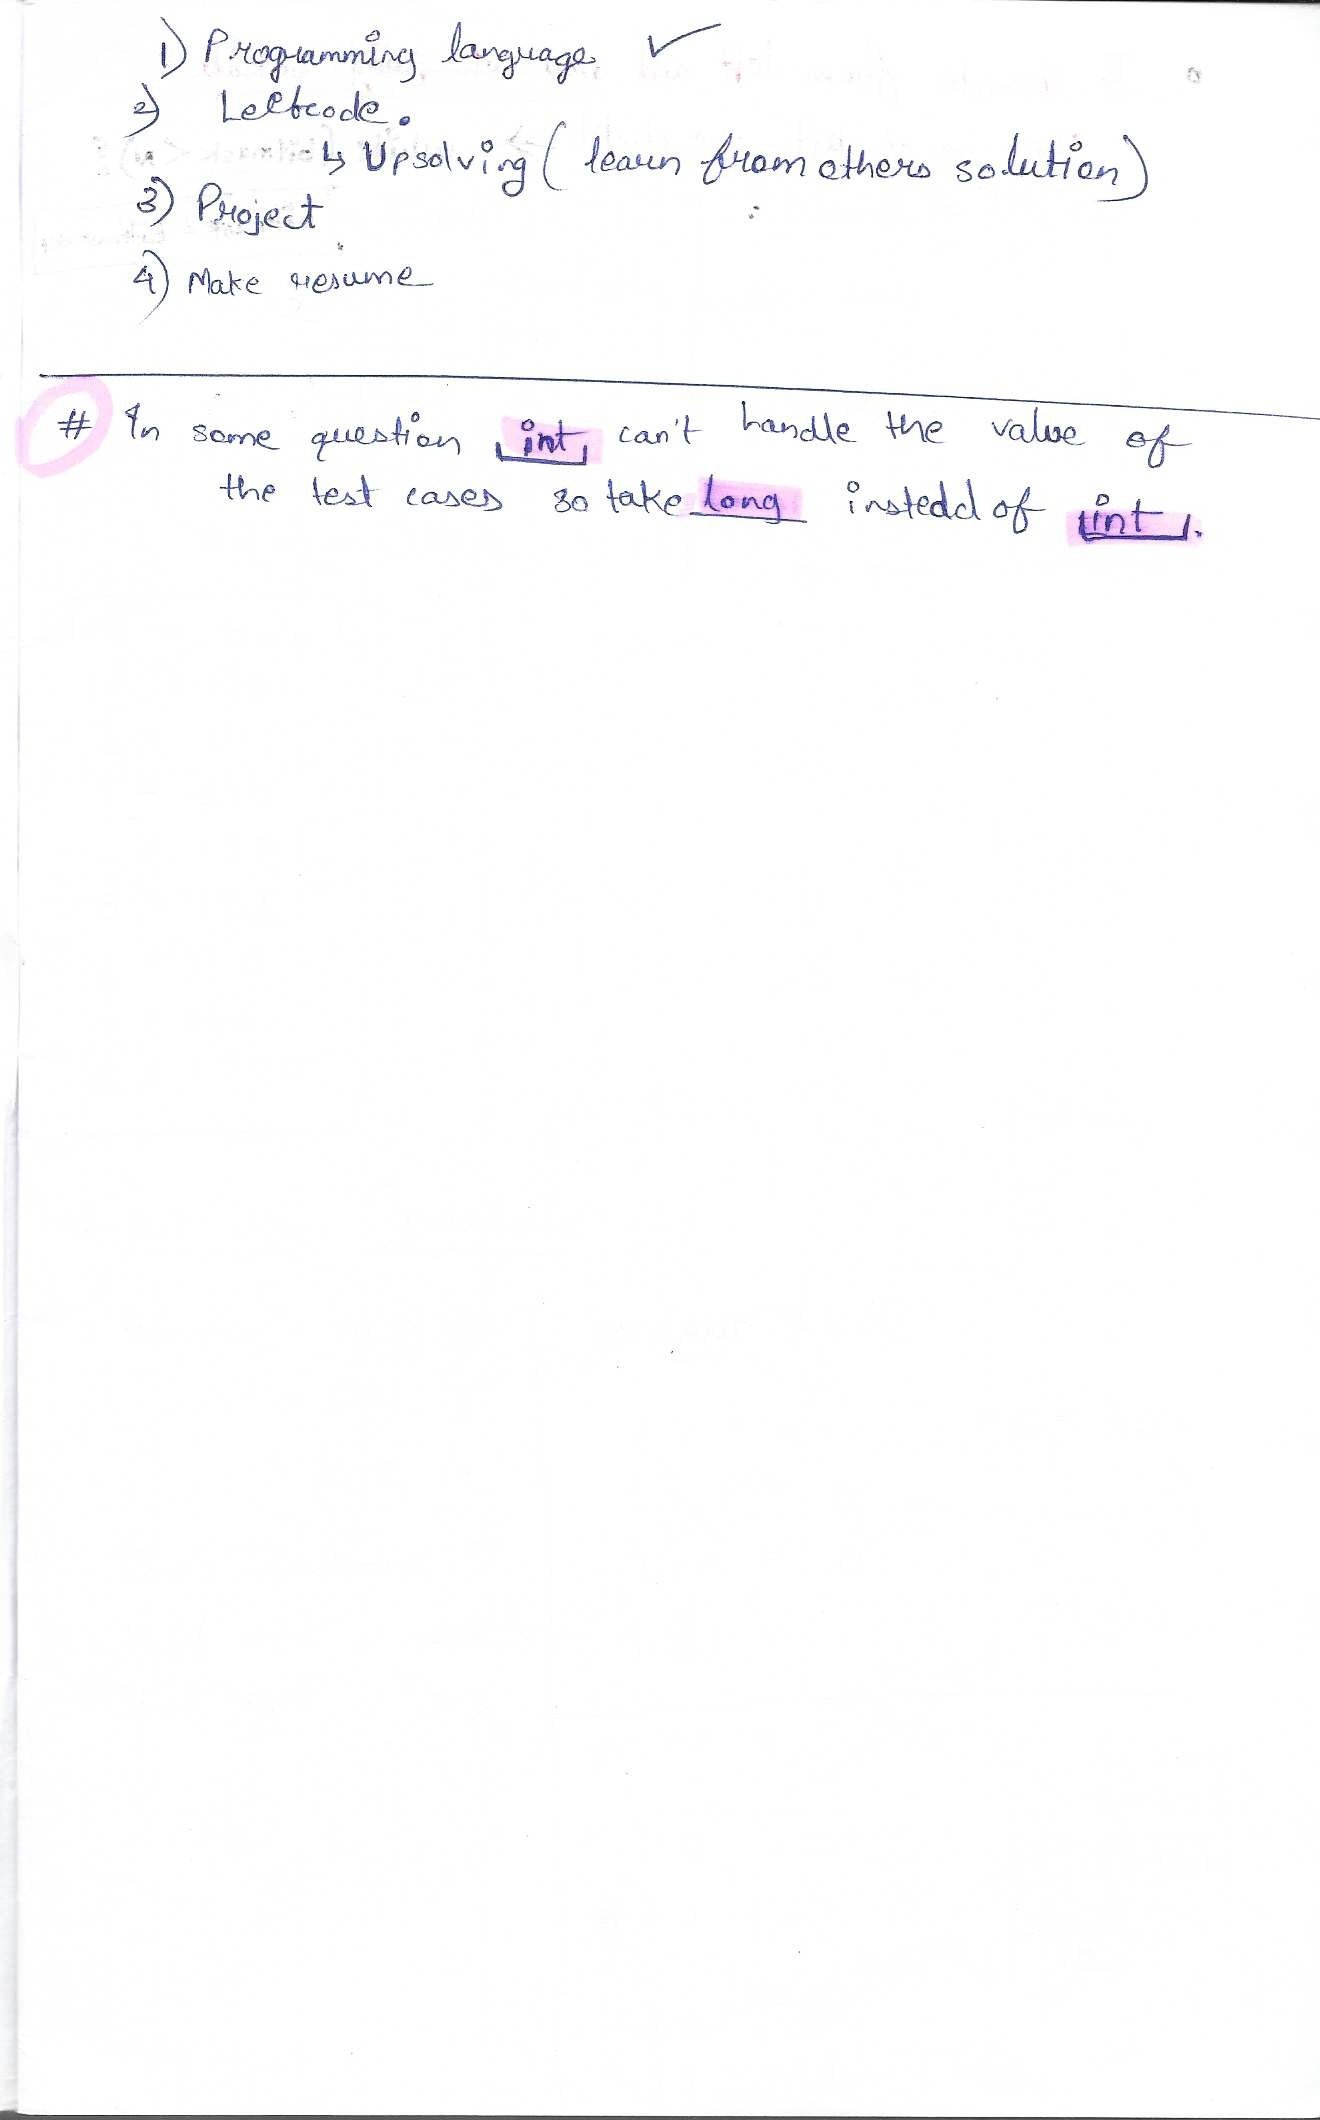 1) Programming language ✓
2) Leetcode.
↳ Upsolving ( learn from others solution)
3) Project
4) Make resume
# In some question int can't handle the value of
the test cases so take long instedd of int.